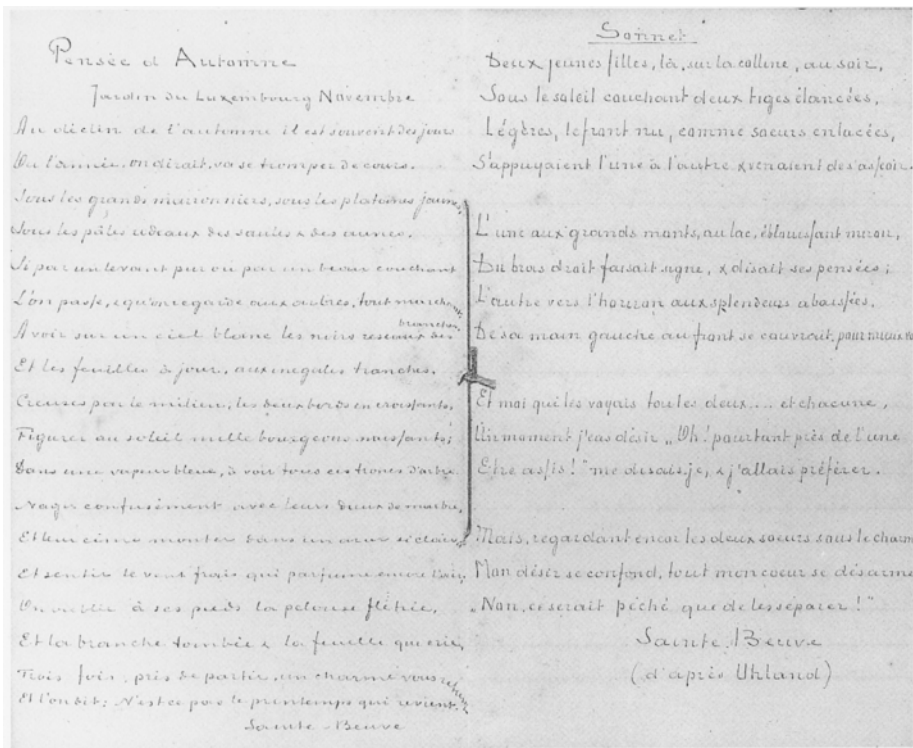 Pensée d'Automne
Jardin du Luxembourg Novembre
Au déclin de l'automne il est souvent des jours
Où l'année, on dirait, va se tromper de cours.
Sous les grands marronniers, sous les platanes jaunes,
Sous les pâles rideaux des saules & des aunes,
Si par un levant pur ou par un beau couchant
L'on passe, & qu'on regarde aux arbres, tout marchant,
A voir sur un ciel blanc les noirs reseaux des branches
Et les feuilles à jour, aux inegales tranches,
Creuses par le milieu, les deux bords en croissants,
Figurer au soleil mille bourgeons naissants;
Dans une vapeur bleue, à voir tous ces troncs d'arbre
Nager confusément avec leurs dieux de marbre,
Et leur cime monter dans un azur si clair,
Et sentir le vent frais qui parfume encore l'air,
On oublie à ses pieds la pelouse flétrie,
Et la branche tombée & la feuille qui crie,
Trois fois, près de partir, un charme vous retient
Et l'on dit; N'est ce pas le printemps qui revient.
Sainte-Beuve
Sonnet
Deux jeunes filles, là, sur la colline, au soir,
Sous le soleil couchant deux tiges élancées,
Légères, le front nu, comme soeurs enlacées,
S'appuyaient l'une à l'autre & venaient de s'asseoir.
L'une aux grands monts, au lac, éblouissant miroir,
Du bras droit faisait signe, & disait ses pensées;
L'autre vers l'horizon aux splendeurs abaissées,
De sa main gauche au front se couvrait, pour mieux
Et moi qui les voyais toutes deux.... et chacune,
Un moment j'eus désir "Oh! pourtant près de l'une
Etre assis!" me disais-je, & j'allais préférer.
Mais, regardant encor les deux soeurs sous le charme
Mon désir se confond, tout mon coeur se désarme
"Non, ce serait péché que de les séparer!"
Sainte-Beuve
(d'après Uhland)